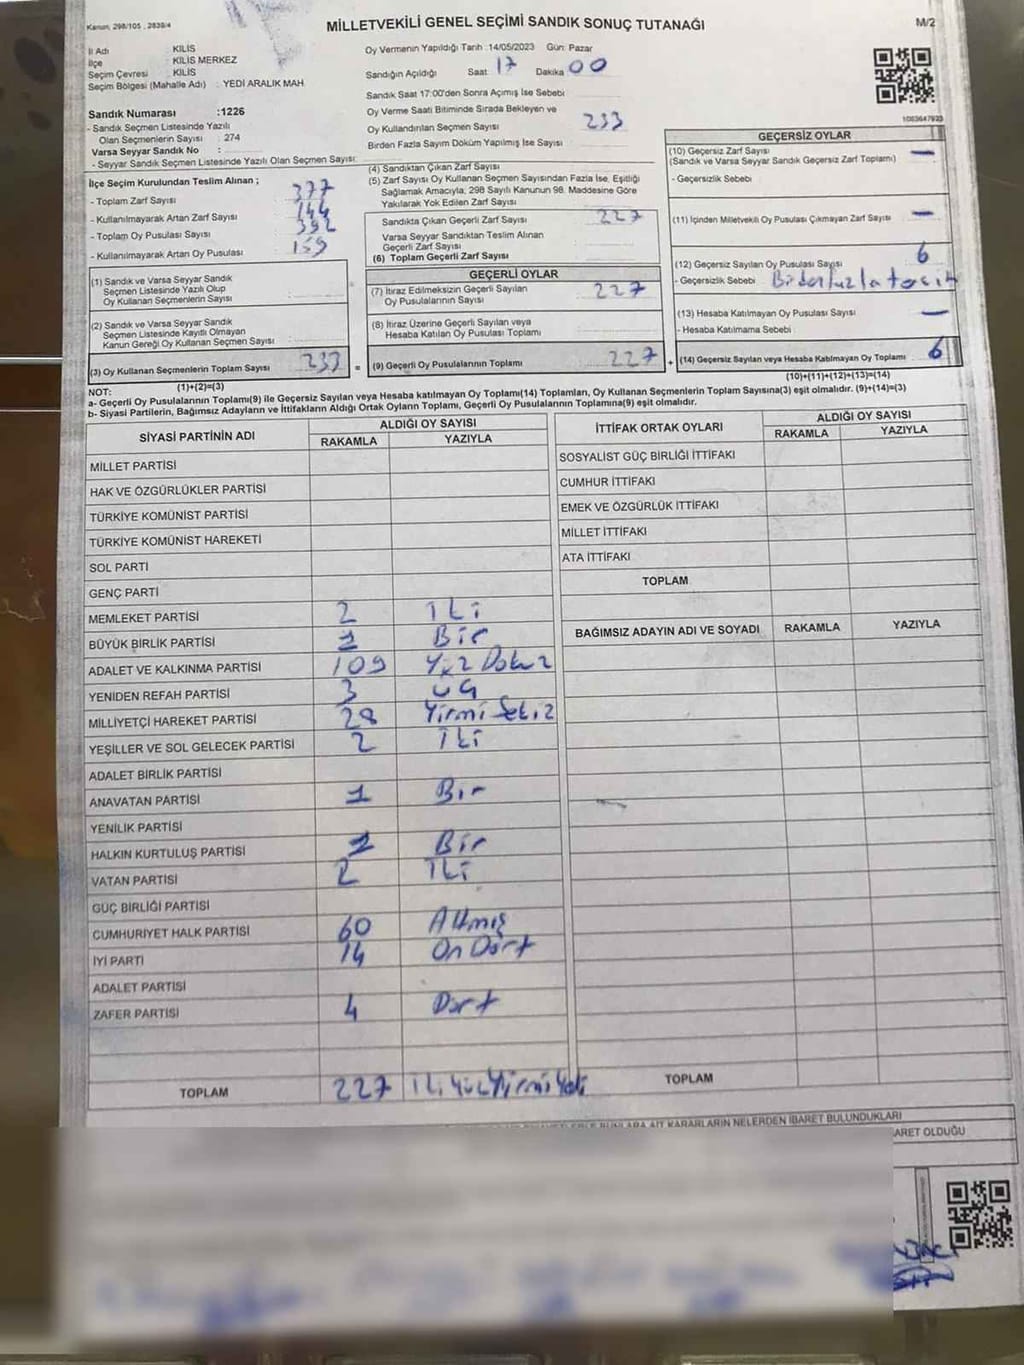 Kanun: 298/105 , 2839/4
MİLLETVEKİLİ GENEL SEÇİMİ SANDIK SONUÇ TUTANAĞI
M/2
İl Adı KİLİS
İlçe KİLİS MERKEZ
Seçim Çevresi : KİLİS
Seçim Bölgesi (Mahalle Adı) : YEDİ ARALIK MAH
Sandık Numarası :1226
- Sandık Seçmen Listesinde Yazılı
Olan Seçmenlerin Sayısı : 274
Varsa Seyyar Sandık No :
- Seyyar Sandık Seçmen Listesinde Yazılı Olan Seçmen Sayısı:
Oy Vermenin Yapıldığı Tarih :14/05/2023 Gün: Pazar
Sandığın Açıldığı Saat 17 Dakika 00
Sandık Saat 17:00'den Sonra Açımış İse Sebebi
Oy Verme Saati Bitiminde Sırada Bekleyen ve
Oy Kullandırılan Seçmen Sayısı 233
Birden Fazla Sayım Döküm Yapılmış İse Sayısı
İlçe Seçim Kurulundan Teslim Alınan ;
- Toplam Zarf Sayısı 377
- Kullanılmayarak Artan Zarf Sayısı 144
- Toplam Oy Pusulası Sayısı 392
- Kullanılmayarak Artan Oy Pusulası 159
(1) Sandık ve Varsa Seyyar Sandık
Seçmen Listesinde Yazılı Olup
Oy Kullanan Seçmenlerin Sayısı
(2) Sandık ve Varsa Seyyar Sandık
Seçmen Listesinde Kayıtlı Olmayan
Kanun Gereği Oy Kullanan Seçmen Sayısı
(3) Oy Kullanan Seçmenlerin Toplam Sayısı 233
(1)+(2)=(3)
(4) Sandıktan Çıkan Zarf Sayısı
(5) Zarf Sayısı Oy Kullanan Seçmen Sayısından Fazla İse, Eşitliği
Sağlamak Amacıyla, 298 Sayılı Kanunun 98. Maddesine Göre
Yakılarak Yok Edilen Zarf Sayısı
Sandıkta Çıkan Geçerli Zarf Sayısı 227
Varsa Seyyar Sandıktan Teslim Alınan
Geçerli Zarf Sayısı
(6) Toplam Geçerli Zarf Sayısı
GEÇERLİ OYLAR
(7) İtiraz Edilmeksizin Geçerli Sayılan
Oy Pusulalarının Sayısı 227
(8) İtiraz Üzerine Geçerli Sayılan veya
Hesaba Katılan Oy Pusulası Toplamı
= (9) Geçerli Oy Pusulalarının Toplamı 227
1083647823
GEÇERSİZ OYLAR
(10) Geçersiz Zarf Sayısı —
(Sandık ve Varsa Seyyar Sandık Geçersiz Zarf Toplamı)
- Geçersizlik Sebebi
(11) İçinden Milletvekili Oy Pusulası Çıkmayan Zarf Sayısı —
(12) Geçersiz Sayılan Oy Pusulası Sayısı 6
- Geçersizlik Sebebi
(13) Hesaba Katılmayan Oy Pusulası Sayısı —
- Hesaba Katılmama Sebebi
+ (14) Geçersiz Sayılan veya Hesaba Katılmayan Oy Toplamı 6
(10)+(11)+(12)+(13)=(14)
NOT:
a- Geçerli Oy Pusulalarının Toplamı(9) ile Geçersiz Sayılan veya Hesaba katılmayan Oy Toplamı(14) Toplamları, Oy Kullanan Seçmenlerin Toplam Sayısına(3) eşit olmalıdır. (9)+(14)=(3)
b- Siyasi Partilerin, Bağımsız Adayların ve İttifakların Aldığı Ortak Oyların Toplamı, Geçerli Oy Pusulalarının Toplamına(9) eşit olmalıdır.
SİYASİ PARTİNİN ADI ALDIĞI OY SAYISI
RAKAMLA YAZIYLA
MİLLET PARTİSİ
HAK VE ÖZGÜRLÜKLER PARTİSİ
TÜRKİYE KOMÜNİST PARTİSİ
TÜRKİYE KOMÜNİST HAREKETİ
SOL PARTİ
GENÇ PARTİ
MEMLEKET PARTİSİ 2 İki
BÜYÜK BİRLİK PARTİSİ 1 Bir
ADALET VE KALKINMA PARTİSİ 109 Yüz Dokuz
YENİDEN REFAH PARTİSİ 3 üç
MİLLİYETÇİ HAREKET PARTİSİ 28 Yirmi Sekiz
YEŞİLLER VE SOL GELECEK PARTİSİ 2 İki
ADALET BİRLİK PARTİSİ
ANAVATAN PARTİSİ 1 Bir
YENİLİK PARTİSİ
HALKIN KURTULUŞ PARTİSİ 1 Bir
VATAN PARTİSİ 2 İki
GÜÇ BİRLİĞİ PARTİSİ
CUMHURİYET HALK PARTİSİ 60 Altmış
İYİ PARTİ 14 On Dört
ADALET PARTİSİ
ZAFER PARTİSİ 4 Dört
TOPLAM 227 İki Yüz Yirmi Yedi
İTTİFAK ORTAK OYLARI ALDIĞI OY SAYISI
RAKAMLA YAZIYLA
SOSYALİST GÜÇ BİRLİĞİ İTTİFAKI
CUMHUR İTTİFAKI
EMEK VE ÖZGÜRLÜK İTTİFAKI
MİLLET İTTİFAKI
ATA İTTİFAKI
TOPLAM
BAĞIMSIZ ADAYIN ADI VE SOYADI RAKAMLA YAZIYLA
TOPLAM
KARARLARIN NELERDEN İBARET BULUNDUKLARI
OLDUĞU